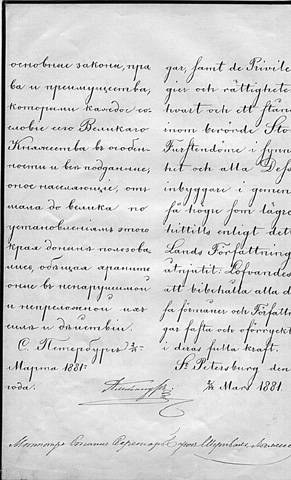 основные законы, пра
ва и преимущества,
которыми каждое со
словiе сего Великаго
Княжества въ особен
ности и все подданные,
оное населяющiе, отъ
мала до велика по
установленiямъ этого
края доныне пользова
лись, обещая хранить
оные въ ненарушимой
и непреложной ихъ
силе и действiи.
С. Петербургъ 2/14
Марта 1881
года.
gar, samt de Privile
gier och rättighete
hvart och ett stånd
inom berörde Sto
Furstendöme i synn
het och alla Dess
inbyggare i gemen
så högre som lägre
hittills enligt det
Lands Författning
utnjutit. Lofvandes
att bibehålla alla d
sa förmåner och Författ
gar fasta och oförryckt
i deras fulla kraft.
St Petersburg den
2/14 Mars 1881.
Министръ Статсъ Секретарь